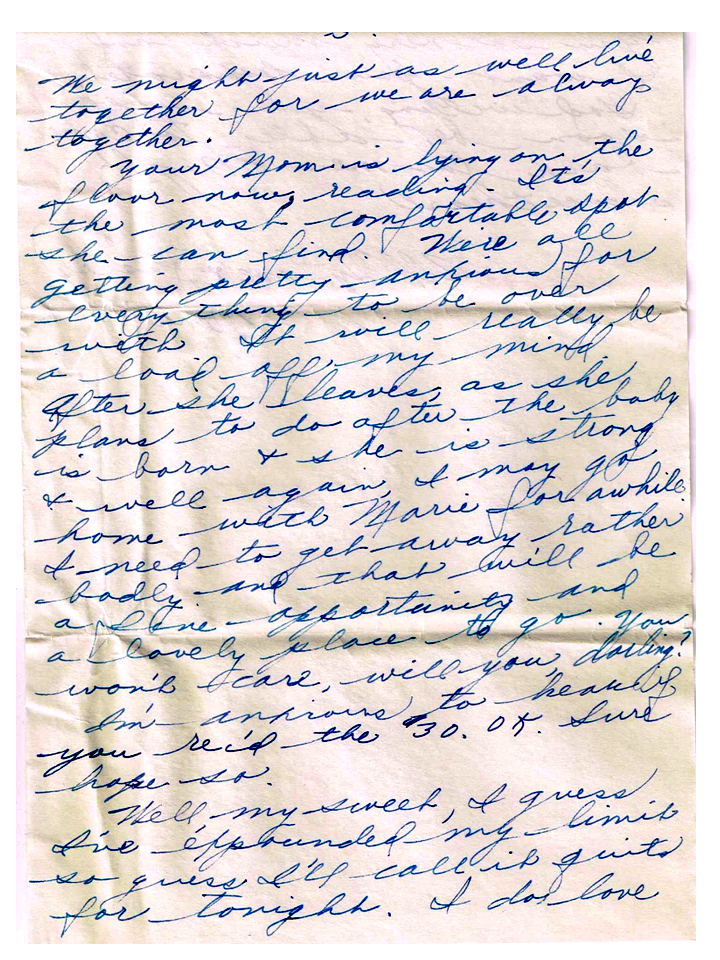 We might just as well live
together for we are always
together.
Your Mom is lying on the
floor now, reading. It's
the most comfortable spot
she can find. We're all
getting pretty anxious for
every thing to be over
with. It will really be
a load off my mind.
After she leaves, as she
plans to do after the baby
is born & she is strong
& well again, I may go
home with Marie for awhile.
I need to get away rather
badly and that will be
a fine opportunity and
a lovely place to go. You
won't care, will you, darling?
I'm anxious to hear if
you rec'd the $30. OK. Sure
hope so.
Well my sweet, I guess
I've expounded my limit
so guess I'll call it quits
for tonight. I do love